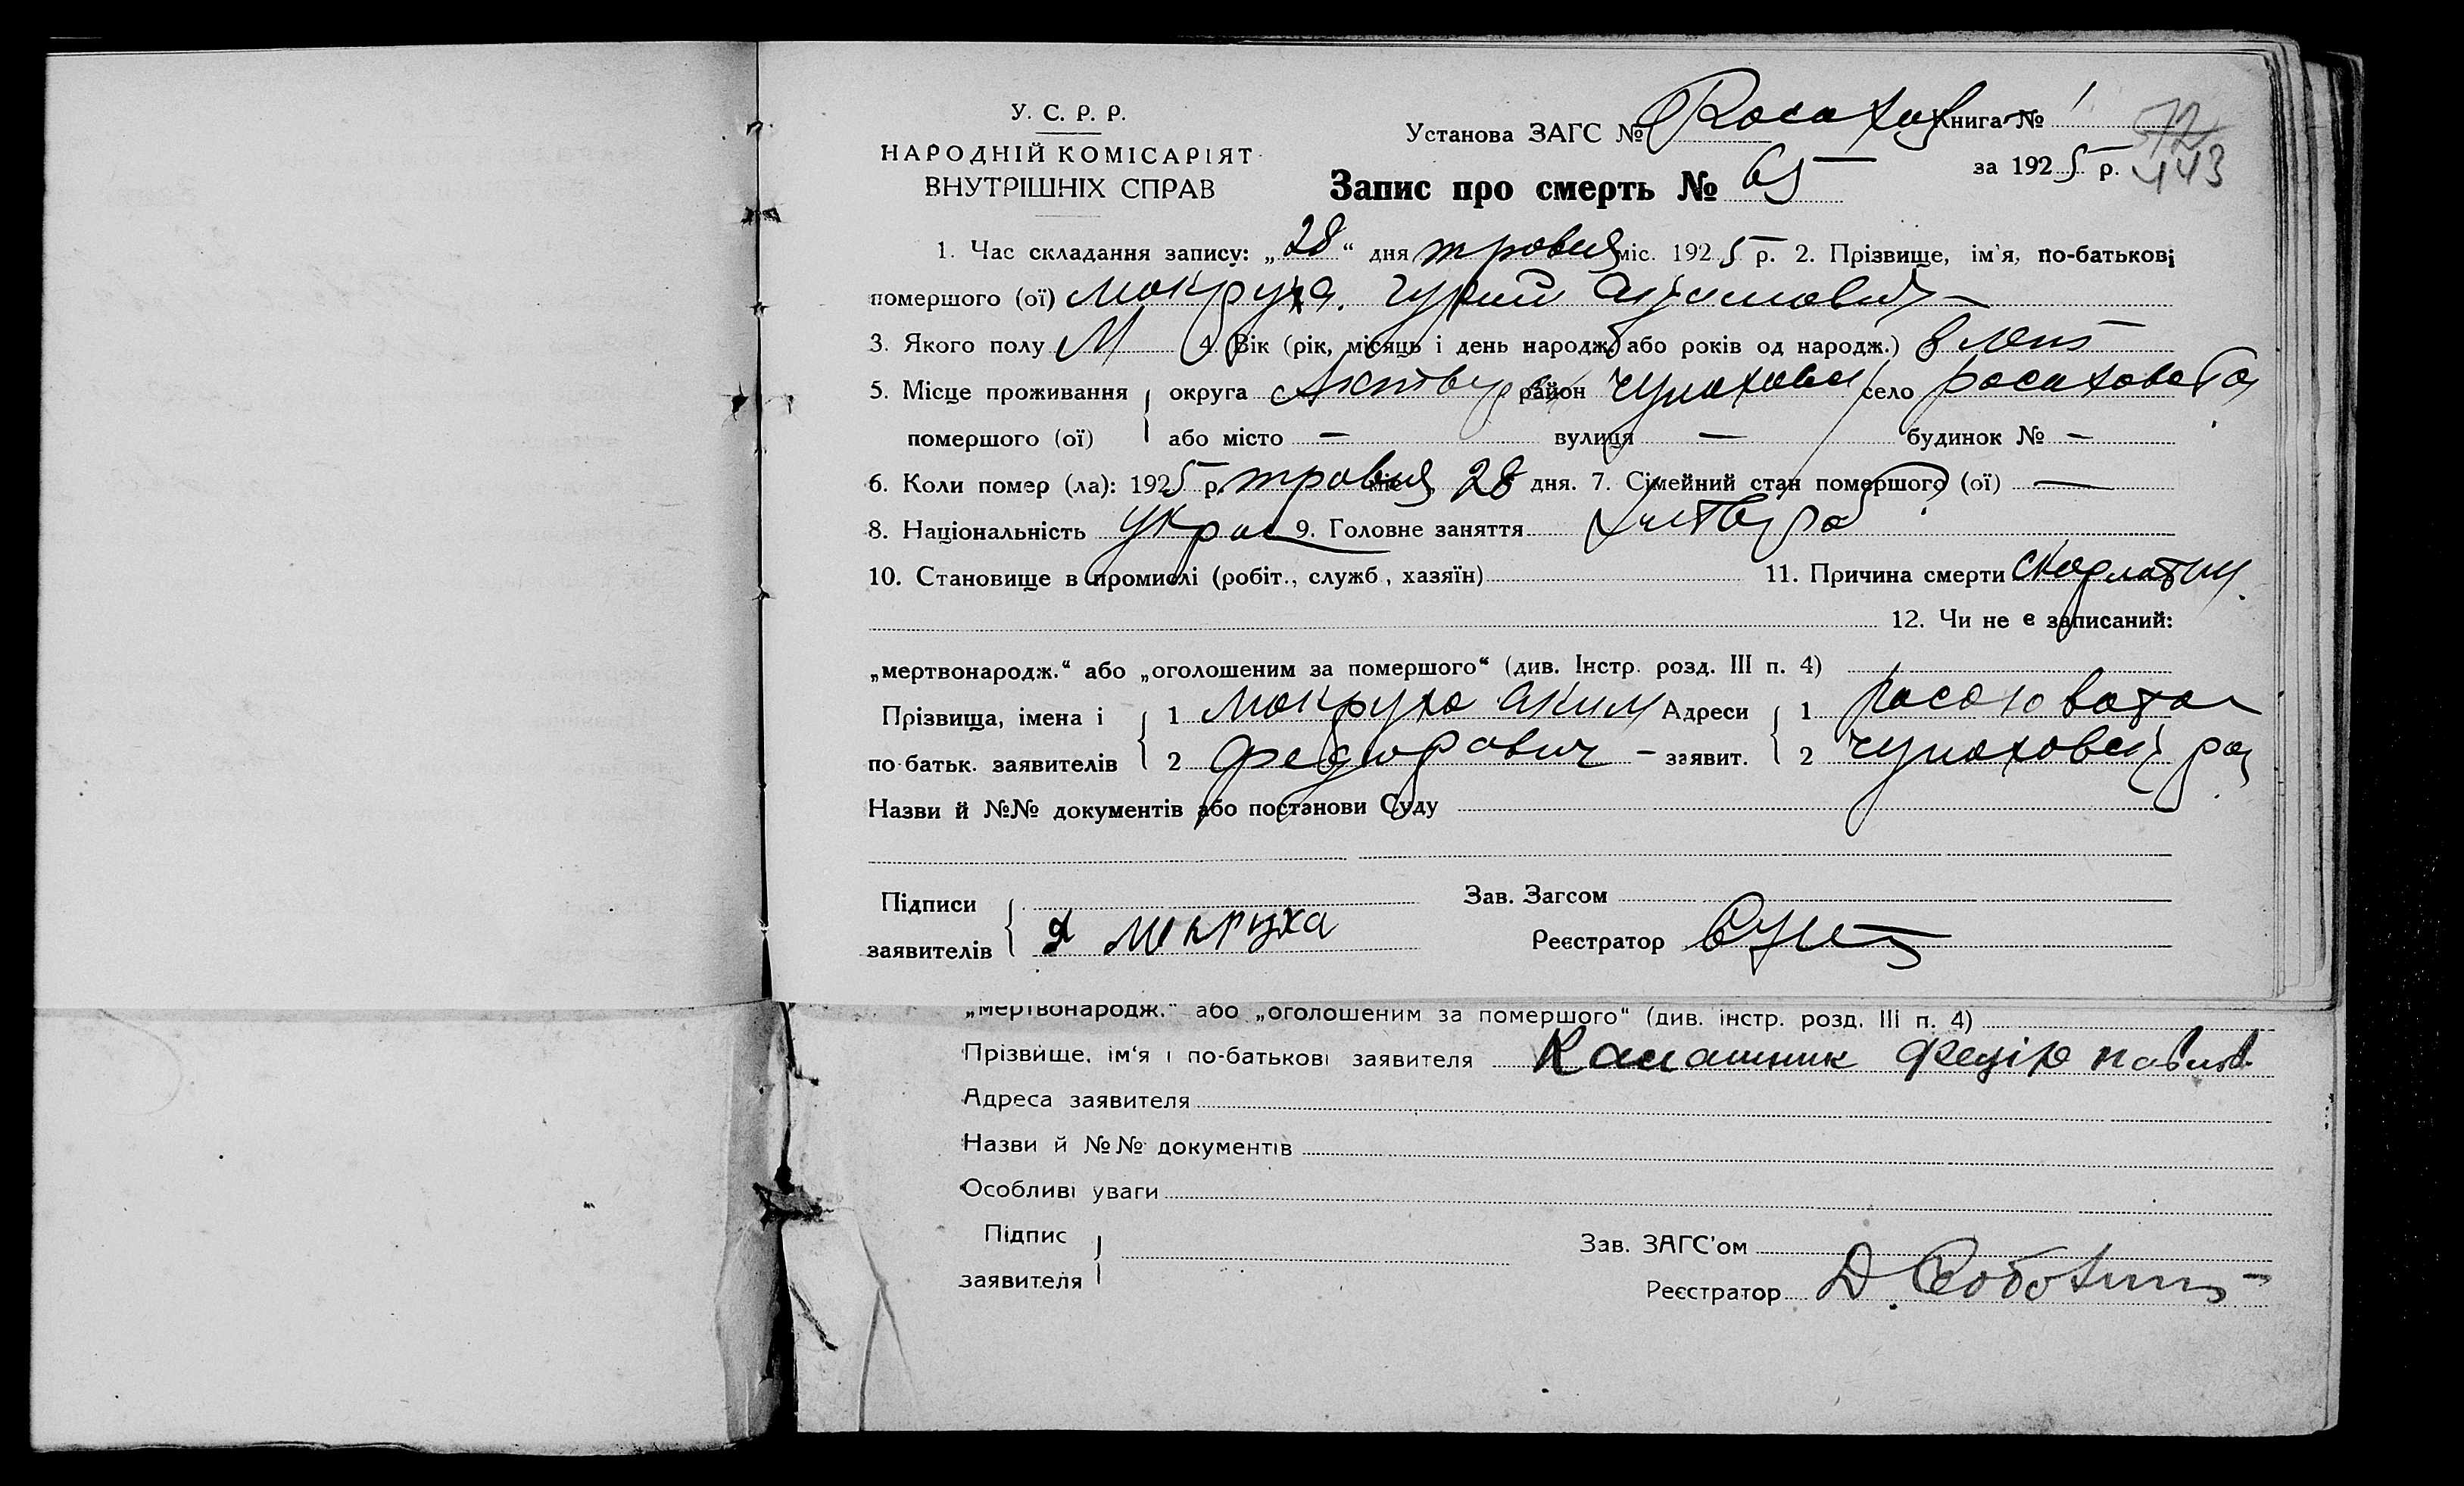 У. С. Р. Р.
НАРОДНІЙ КОМІСАРІЯТ
ВНУТРІШНІХ СПРАВ
Установа ЗАГС № Росахов Книга № 1
за 1925 р.
72
143
Запис про смерть № 65
1. Час складання запису: „28“ дня травня міс. 1925 р. 2. Прізвище, ім'я, по-батькові
помершого (ої) Мокруха Гурий
3. Якого полу М 4. Вік (рік, місяць і день народж. або років од народж.) 8 лет
5. Місце проживання округа район село Росаховата
помершого (ої) або місто — вулиця — будинок № —
6. Коли помер (ла): 1925 р. травня міс. 28 дня. 7. Сімейний стан помершого (ої) —
8. Національність Укра 9. Головне заняття
10. Становище в промислі (робіт., служб., хазяїн) 11. Причина смерти скарлатин
12. Чи не є записаний:
„мертвонародж.“ або „оголошеним за помершого“ (див. Інстр. розд. III п. 4)
Прізвища, імена і 1 Мокруха Аким Адреси 1 Росоховата
по-батьк. заявителів 2 Федорович — заявит. 2
Назви й №№ документів або постанови Суду
Підписи Зав. Загсом
заявителів Я Мокруха Реєстратор
„мертвонародж." або „оголошеним за помершого" (див. інстр. розд. III п. 4)
Прізвище, ім'я і по-батькові заявителя Калашник
Адреса заявителя
Назви й №№ документів
Особливі уваги
Підпис Зав. ЗАГС'ом
заявителя Реєстратор Д.